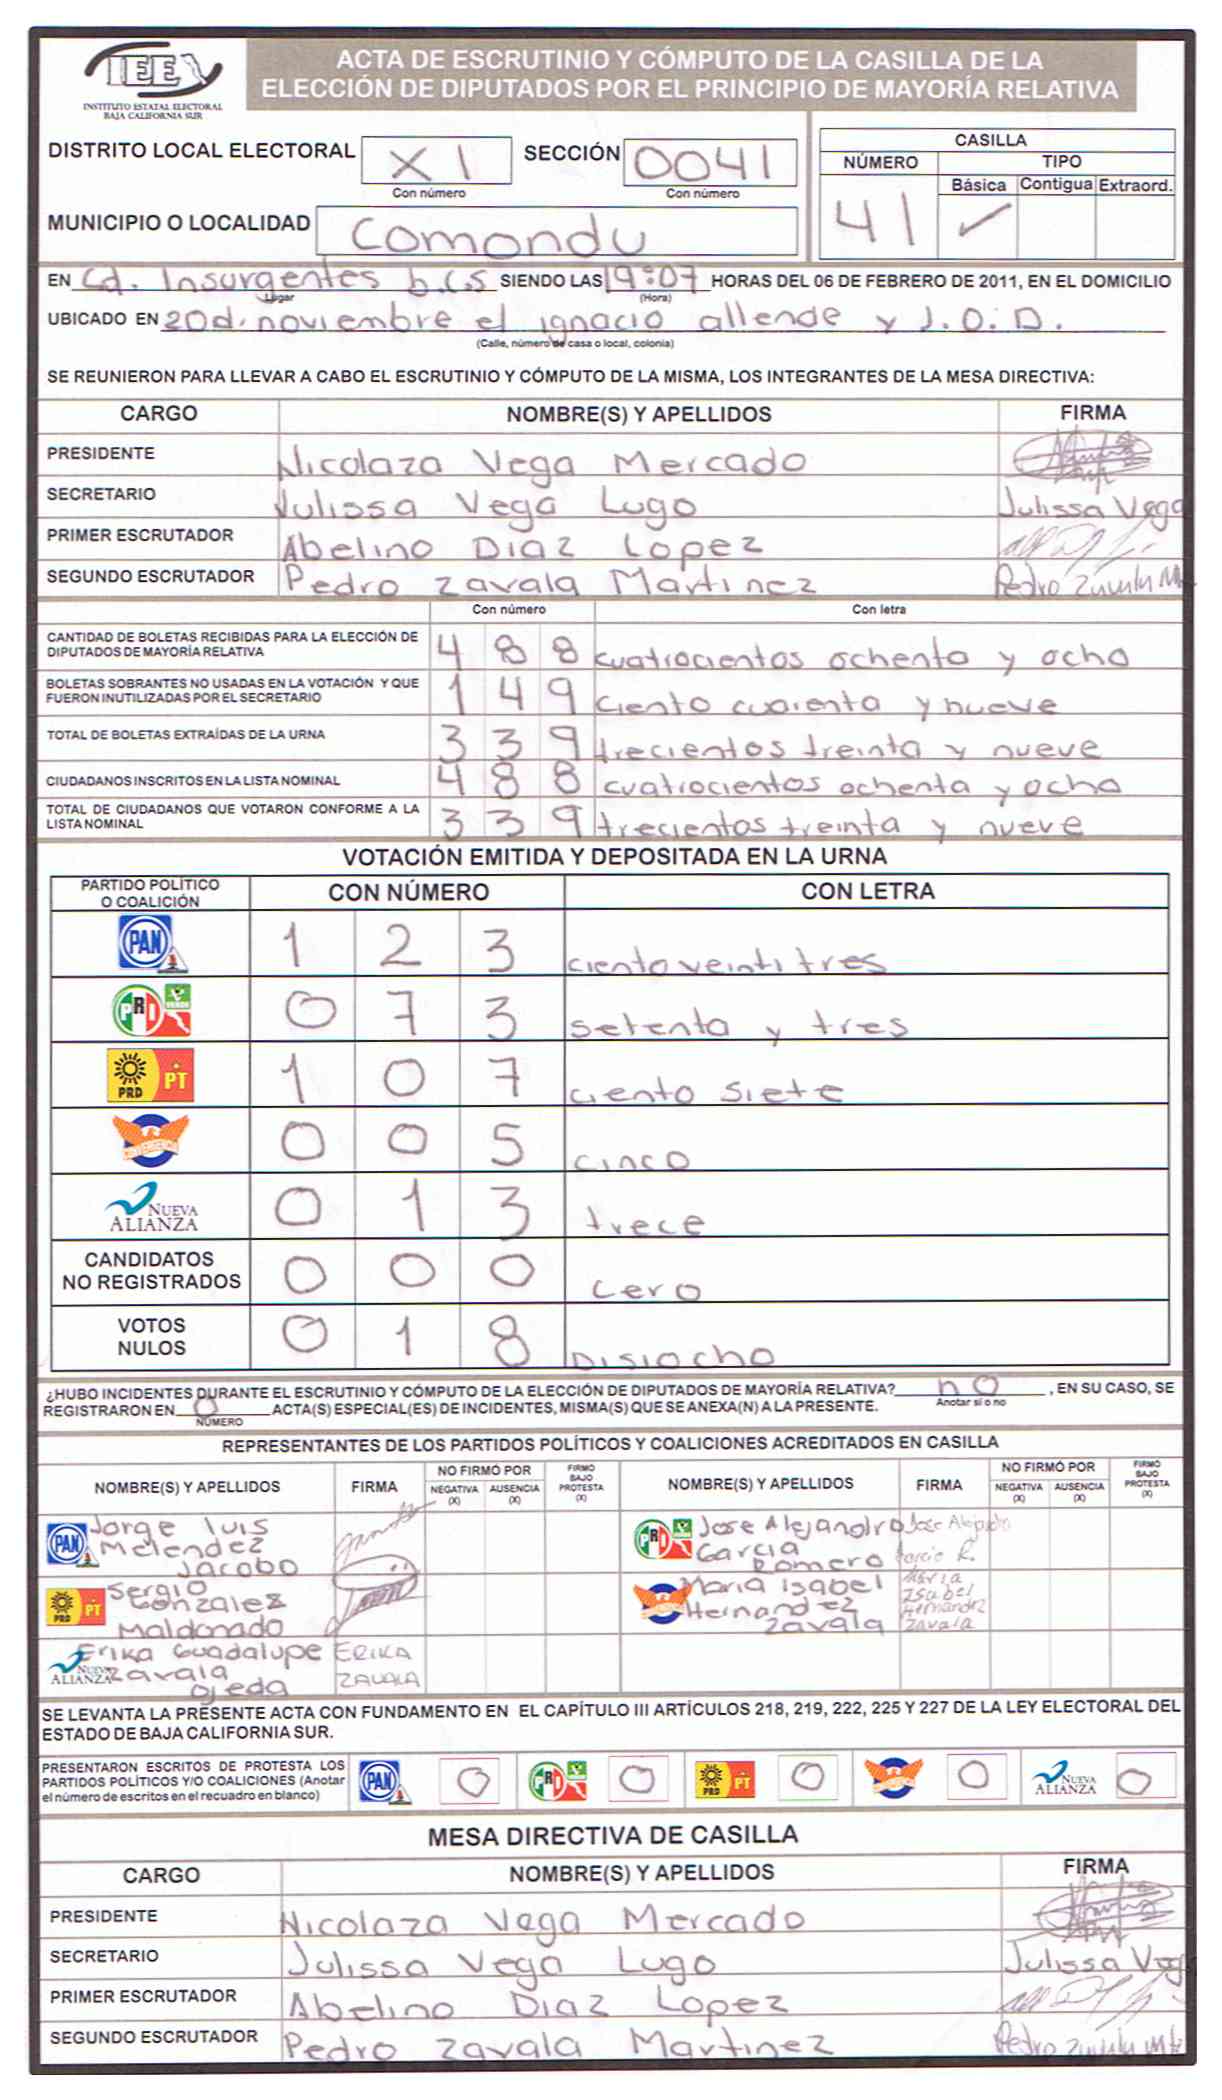 IEE
INSTITUTO ESTATAL ELECTORAL
BAJA CALIFORNIA SUR
ACTA DE ESCRUTINIO Y CÓMPUTO DE LA CASILLA DE LA
ELECCIÓN DE DIPUTADOS POR EL PRINCIPIO DE MAYORÍA RELATIVA
DISTRITO LOCAL ELECTORAL XI SECCIÓN 0041
Con número Con número
MUNICIPIO O LOCALIDAD Comondu
CASILLA
NÚMERO TIPO
Básica Contigua Extraord.
41 ✓
EN Cd. Insurgentes b.c.s SIENDO LAS 19:07 HORAS DEL 06 DE FEBRERO DE 2011, EN EL DOMICILIO
Lugar (Hora)
UBICADO EN 20 d. noviembre el ignacio allende y J.O.D.
(Calle, número de casa o local, colonia)
SE REUNIERON PARA LLEVAR A CABO EL ESCRUTINIO Y CÓMPUTO DE LA MISMA, LOS INTEGRANTES DE LA MESA DIRECTIVA:
CARGO NOMBRE(S) Y APELLIDOS FIRMA
PRESIDENTE Nicolaza Vega Mercado
SECRETARIO Julissa Vega Lugo Julissa Vega
PRIMER ESCRUTADOR Abelino Diaz Lopez
SEGUNDO ESCRUTADOR Pedro Zavala Martinez Pedro Zavala
Con número Con letra
CANTIDAD DE BOLETAS RECIBIDAS PARA LA ELECCIÓN DE
DIPUTADOS DE MAYORÍA RELATIVA 4 8 8 cuatrocientos ochenta y ocho
BOLETAS SOBRANTES NO USADAS EN LA VOTACIÓN Y QUE
FUERON INUTILIZADAS POR EL SECRETARIO 1 4 9 ciento cuarenta y nueve
TOTAL DE BOLETAS EXTRAÍDAS DE LA URNA 3 3 9 trecientos treinta y nueve
CIUDADANOS INSCRITOS EN LA LISTA NOMINAL 4 8 8 cuatrocientos ochenta y ocho
TOTAL DE CIUDADANOS QUE VOTARON CONFORME A LA
LISTA NOMINAL 3 3 9 trecientos treinta y nueve
VOTACIÓN EMITIDA Y DEPOSITADA EN LA URNA
PARTIDO POLÍTICO
O COALICIÓN CON NÚMERO CON LETRA
PAN 1 2 3 ciento veinti tres
PRI VERDE 0 7 3 setenta y tres
PRD PT 1 0 7 ciento siete
CONVERGENCIA 0 0 5 cinco
NUEVA ALIANZA 0 1 3 trece
CANDIDATOS
NO REGISTRADOS 0 0 0 cero
VOTOS
NULOS 0 1 8 Disiocho
¿HUBO INCIDENTES DURANTE EL ESCRUTINIO Y CÓMPUTO DE LA ELECCIÓN DE DIPUTADOS DE MAYORÍA RELATIVA? no , EN SU CASO, SE
Anotar si o no
REGISTRARON EN 0 ACTA(S) ESPECIAL(ES) DE INCIDENTES, MISMA(S) QUE SE ANEXA(N) A LA PRESENTE.
NÚMERO
REPRESENTANTES DE LOS PARTIDOS POLÍTICOS Y COALICIONES ACREDITADOS EN CASILLA
NOMBRE(S) Y APELLIDOS FIRMA NO FIRMÓ POR NEGATIVA (X) AUSENCIA (X) FIRMÓ BAJO PROTESTA (X) NOMBRE(S) Y APELLIDOS FIRMA NO FIRMÓ POR NEGATIVA (X) AUSENCIA (X) FIRMÓ BAJO PROTESTA (X)
PAN Jorge luis
Melendez
Jacobo
PRI Jose Alejandro Jose Alejadro
Garcia Garcia R.
Romero
PRD PT Sergio
Gonzalez
Maldonado
Maria Isabel Maria
Hernandez Isabel
Zavala Hernandez
Zavala
NUEVA ALIANZA Erika Guadalupe ERIKA
Zavala ZAVALA
ojeda
SE LEVANTA LA PRESENTE ACTA CON FUNDAMENTO EN EL CAPÍTULO III ARTÍCULOS 218, 219, 222, 225 Y 227 DE LA LEY ELECTORAL DEL
ESTADO DE BAJA CALIFORNIA SUR.
PRESENTARON ESCRITOS DE PROTESTA LOS
PARTIDOS POLÍTICOS Y/O COALICIONES (Anotar
el número de escritos en el recuadro en blanco)
PAN 0 PRI 0 PRD PT 0 0 NUEVA ALIANZA 0
MESA DIRECTIVA DE CASILLA
CARGO NOMBRE(S) Y APELLIDOS FIRMA
PRESIDENTE Nicolaza Vega Mercado
SECRETARIO Julissa Vega Lugo Julissa Vega
PRIMER ESCRUTADOR Abelino Diaz Lopez
SEGUNDO ESCRUTADOR Pedro Zavala Martinez Pedro Zavala Mtz